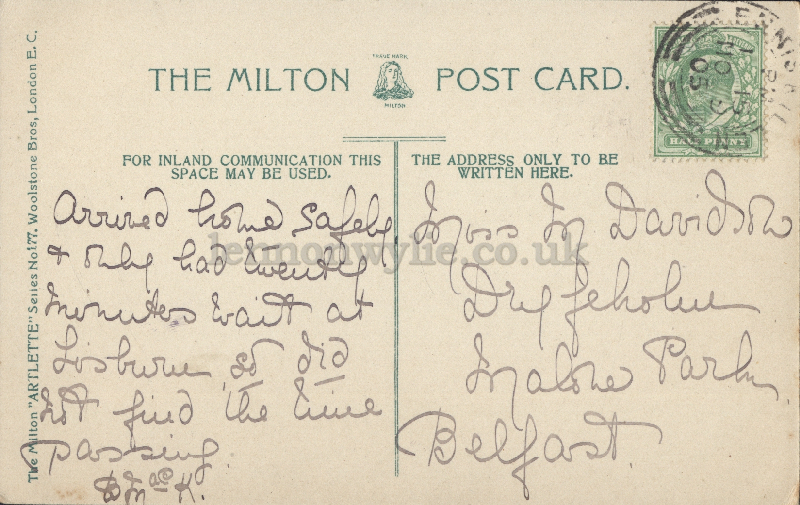 THE MILTON POST CARD.
TRADE MARK
MILTON
FOR INLAND COMMUNICATION THIS
SPACE MAY BE USED.
THE ADDRESS ONLY TO BE
WRITTEN HERE.
The Milton "ARTLETTE" Series No 177. Woolstone Bros, London E.C.
Arrived home safely
& only had twenty
minutes wait at
Lisburn so did
not find the time
passing.
Miss M Davidson
Malone Park
Belfast.
HALF PENNY
lennonwylie.co.uk